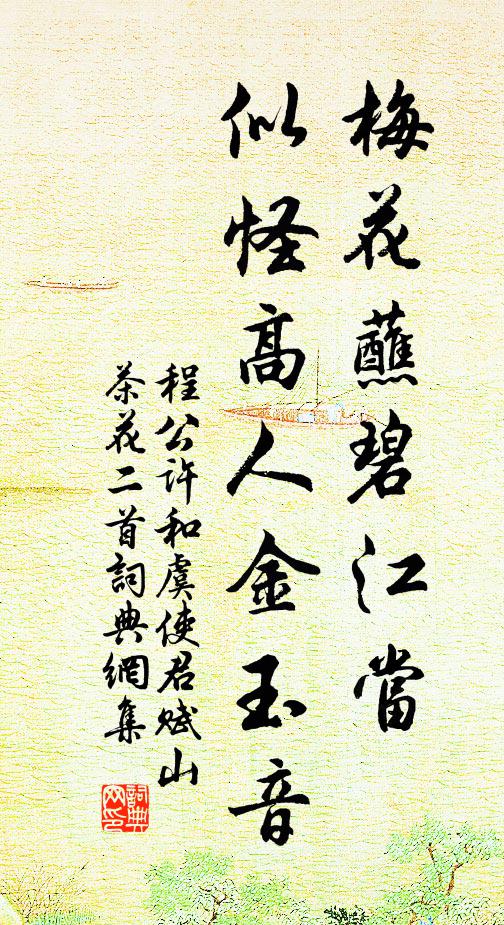 梅花蘸碧江當
似怪高人金玉音
程公許和虞使君賦山
茶花二首詞典網集
詞典
网印